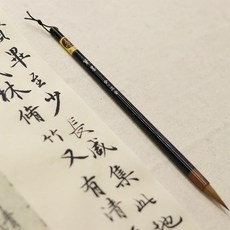 畢至少長咸集此地
林脩竹又有清